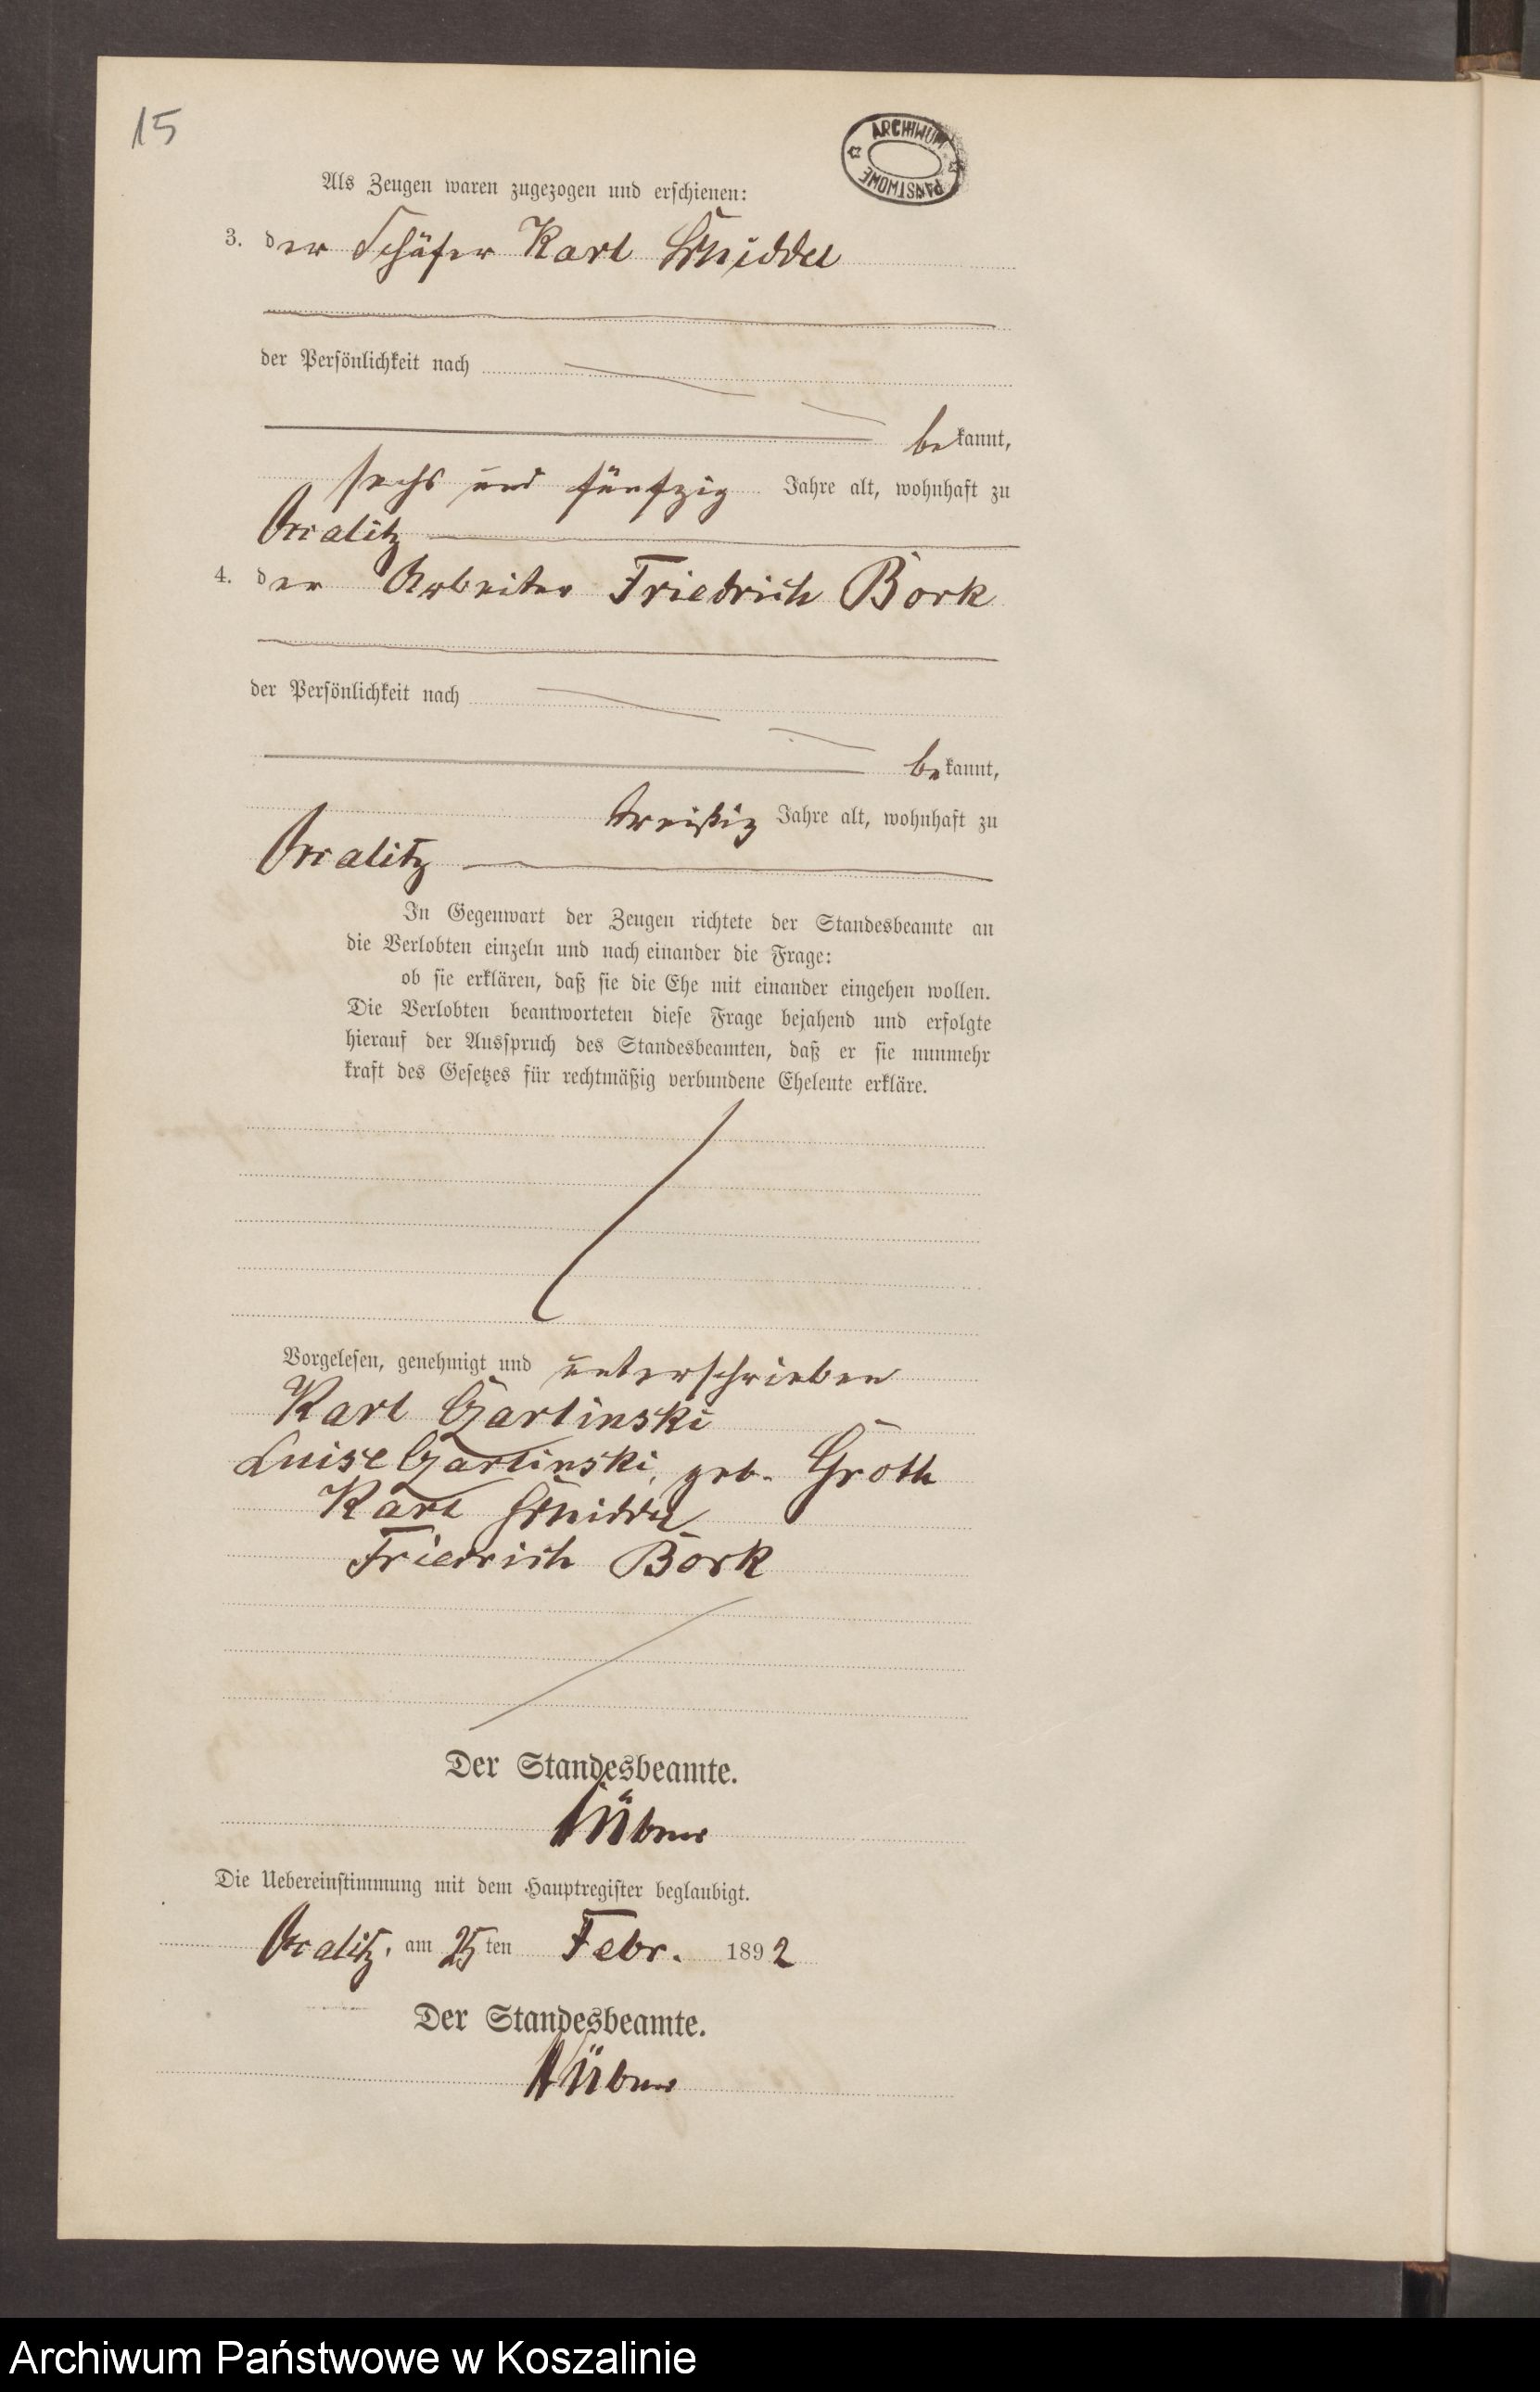 15
ARCHIWUM PAŃSTWOWE
Als Zeugen waren zugezogen und erschienen:
3. der Schäfer Karl
der Persönlichkeit nach
bekannt,
sechs und fünfzig Jahre alt, wohnhaft zu
4. der Arbeiter Friedrich Bork
der Persönlichkeit nach
bekannt,
dreißig Jahre alt, wohnhaft zu
In Gegenwart der Zeugen richtete der Standesbeamte an
die Verlobten einzeln und nach einander die Frage:
ob sie erklären, daß sie die Ehe mit einander eingehen wollen.
Die Verlobten beantworteten diese Frage bejahend und erfolgte
hierauf der Ausspruch des Standesbeamten, daß er sie nunmehr
kraft des Gesetzes für rechtmäßig verbundene Eheleute erkläre.
Vorgelesen, genehmigt und unterschrieben
Karl Garlinski
Luise Garlinski, geb. Groth
Karl
Friedrich Bork
Der Standesbeamte.
Hübner
Die Uebereinstimmung mit dem Hauptregister beglaubigt.
am 25ten Febr. 1892
Der Standesbeamte.
Hübner
Archiwum Państwowe w Koszalinie